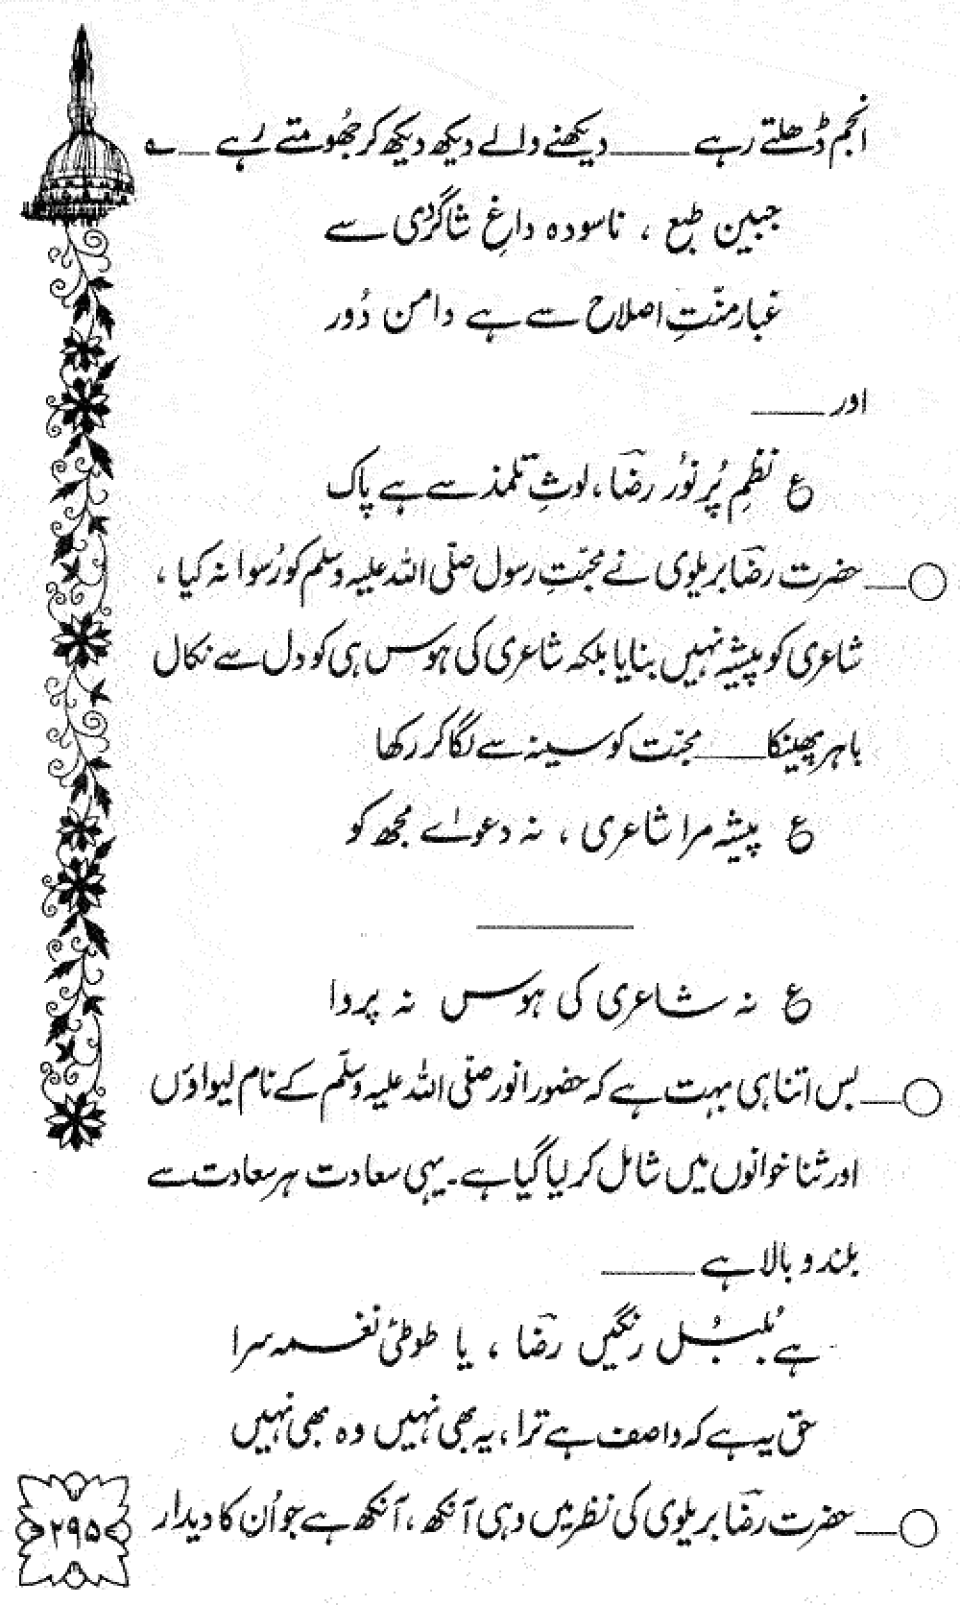 انجم ڈھلتے رہے ــــــ دیکھنے والے دیکھ دیکھ کر جھومتے رہے ــــ ؎
جبین طبع ، ناسودہ داغِ شاگردی سے
غبار منّتِ اصلاح سے ہے دامن دُور
اور ــــــ
ع نظمِ پُر نُورِ رضاؔ ، لوثِ تلمذ سے ہے پاک
○ــــ حضرت رضاؔ بریلوی نے محبّتِ رسول صلّی اللہ علیہ وسلم کو رُسوا نہ کیا ،
شاعری کو پیشہ نہیں بنایا بلکہ شاعری کی ہوس ہی کو دل سے نکال
باہر پھینکا ــــــ محبت کو سینہ سے لگا کر رکھا
ع پیشہ مرا شاعری ، نہ دعواے مجھ کو
ــــــــــــ
ع نہ شاعری کی ہوس نہ پروا
○ــــ بس اتنا ہی بہت ہے کہ حضور انور صلّی اللہ علیہ وسلّم کے نام لیواؤں
اور ثنا خوانوں میں شامل کر لیا گیا ہے۔ یہی سعادت ہر سعادت سے
بلند و بالا ہے ــــــ
ہے بُلبُلِ رنگیں رضاؔ ، یا طوطئ نغمہ سرا
حق یہ ہے کہ واصف ہے ترا ، یہ بھی نہیں وہ بھی نہیں
○ــــ حضرت رضاؔ بریلوی کی نظر میں وہی آنکھ ، آنکھ ہے جو اُن کا دیدار
۲۹۵